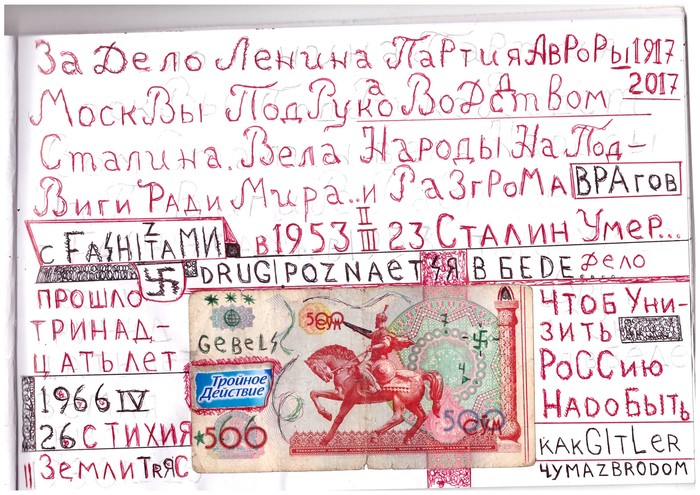 За Дело Ленина Партия АвРоРы 1917
2017
МоскВы ПодРукаВоДДством
Сталина. Вела НародЫ На Под-
Виги Ради Мира..и РаЗгРоМа ВРАгов
с FAShIZTAМИ в 1953 II III 23 Сталин Умер...
DRUG|POZNAETSЯ В БЕДЕ Дело
прошло
тринад-
цать лет
1966 IV
26 СТИХИЯ
Земли TRЯС
GEBELS
500
СУМ
Тройное
Действие
500
500
СУМ
Чтоб Уни-
зить
РоССию
НАдоБыть
каkGITLeR
ЧУМАZBRODOM